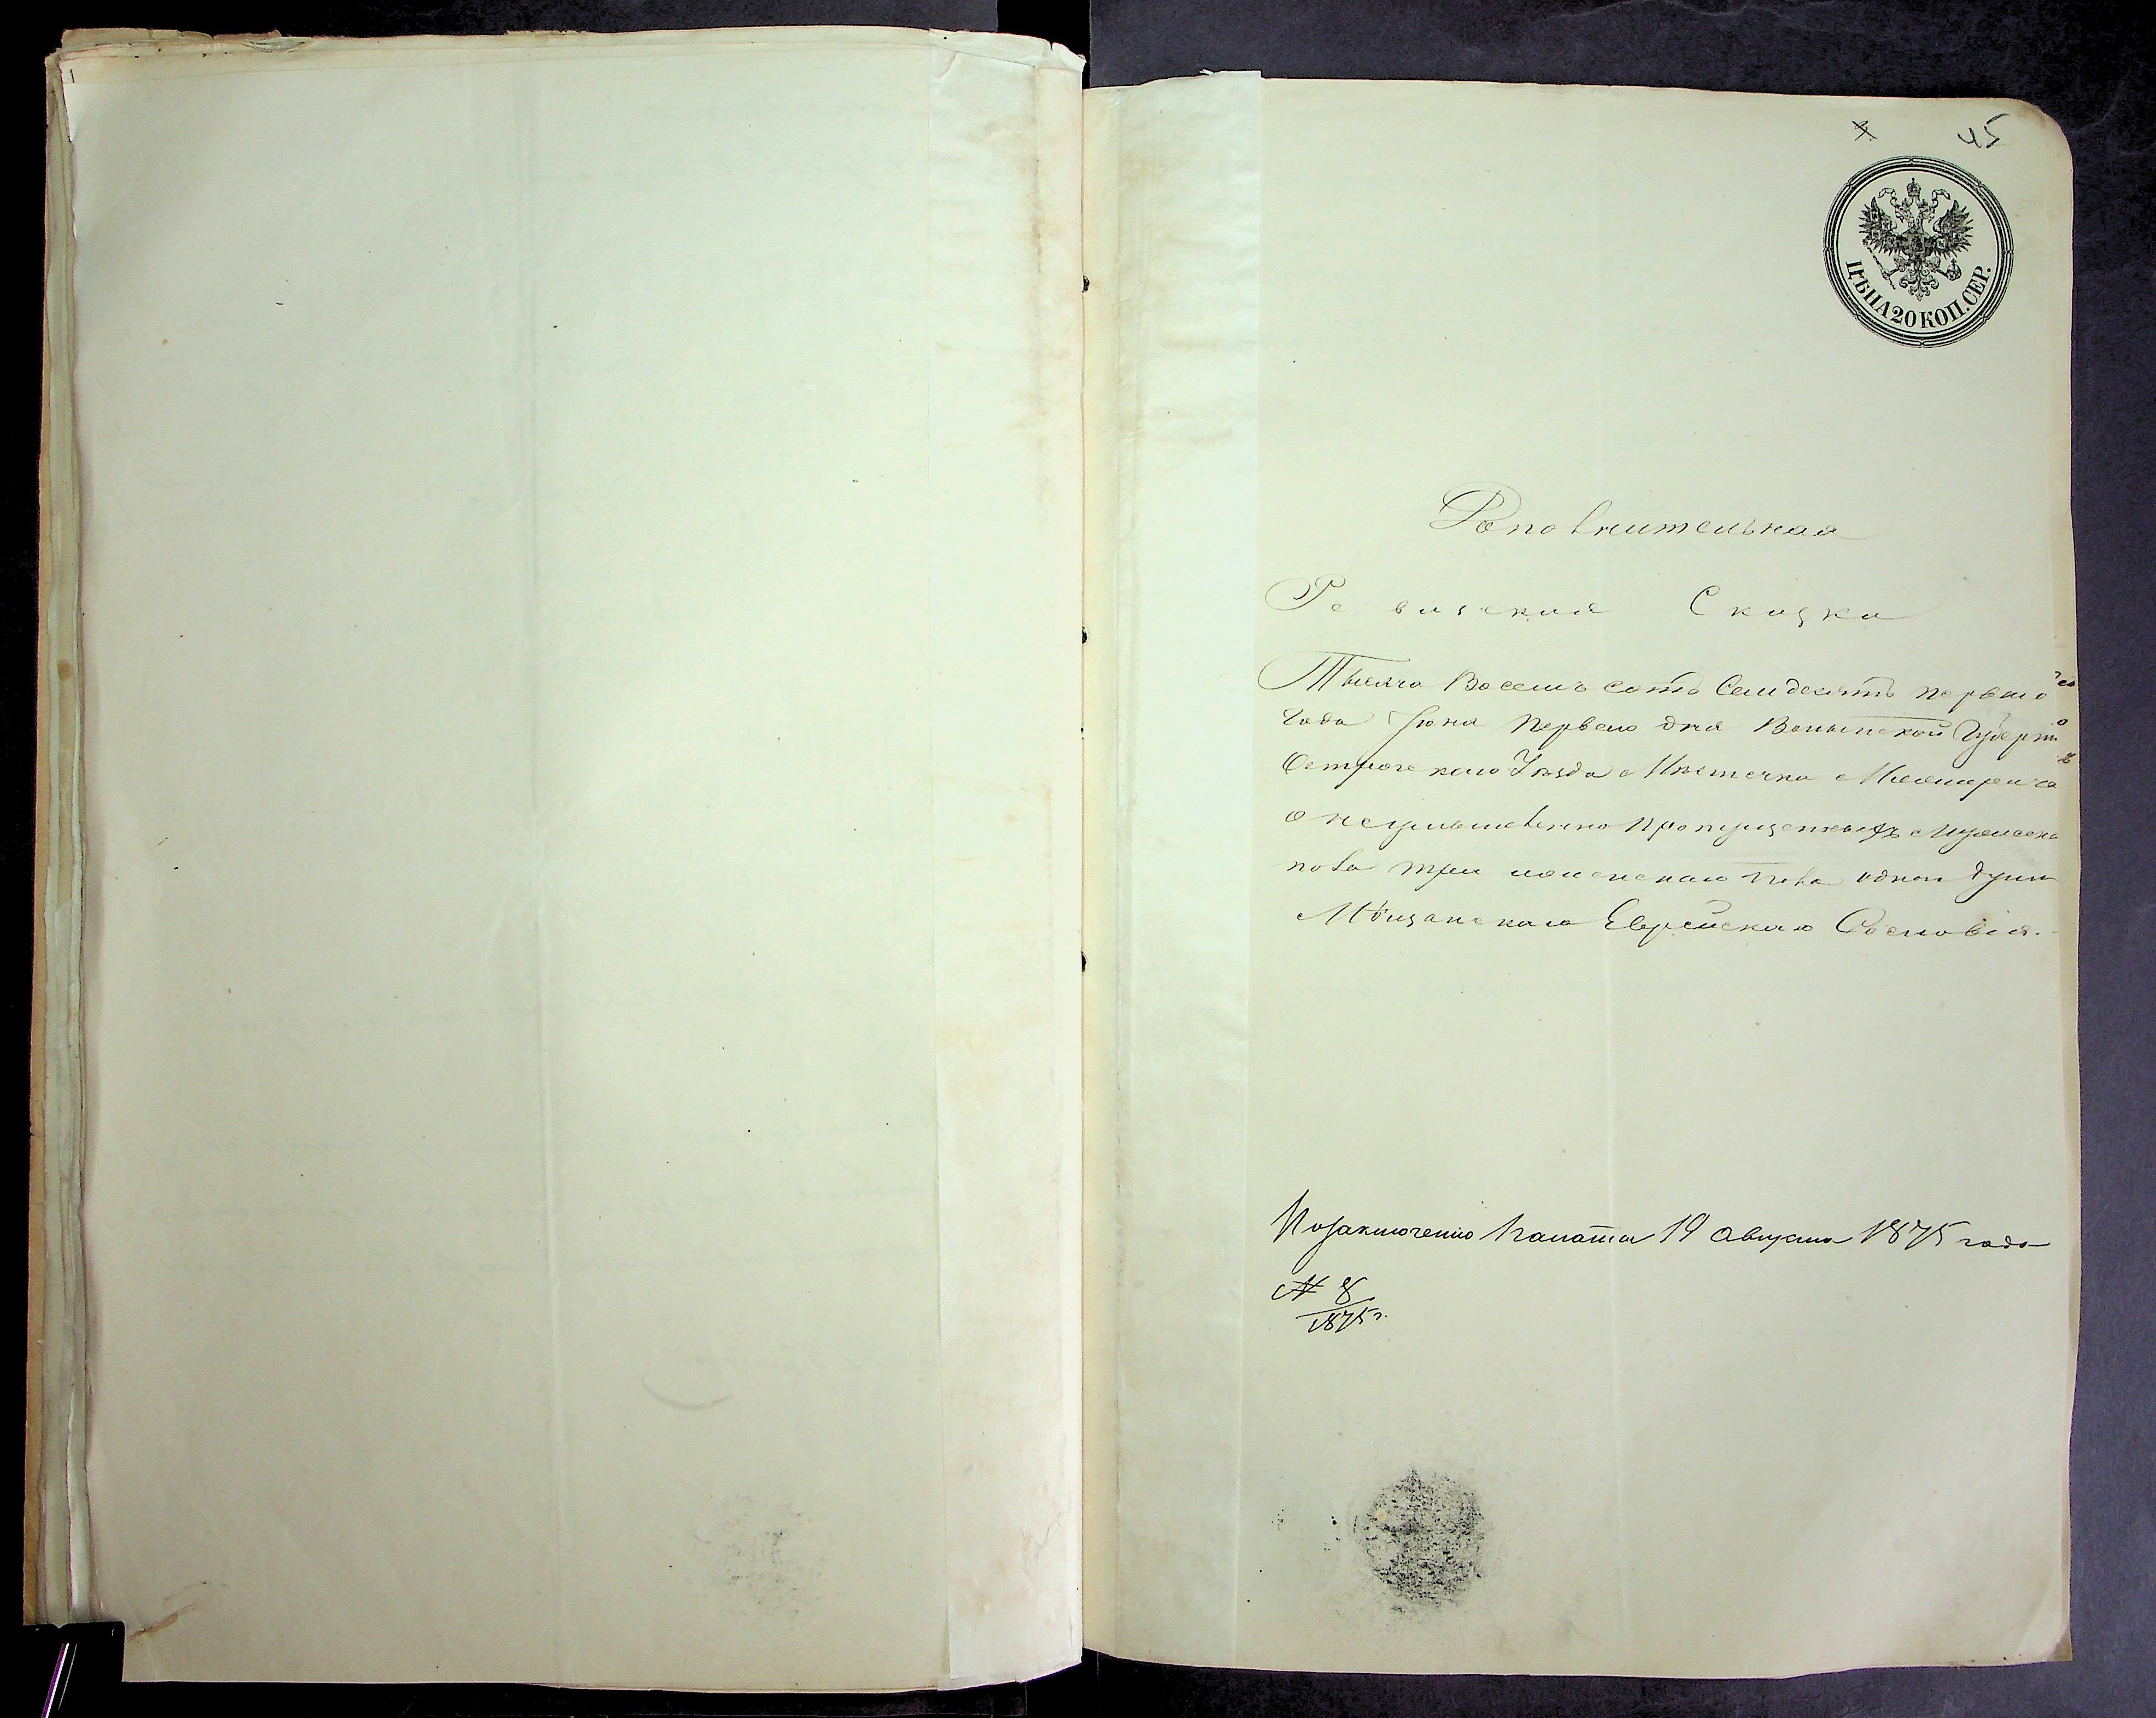 45
ЦѢНА 20 КОП. СЕР.
Дополнительная
Ревизская Сказка
Тысяча Восемь сотъ Семдесятъ первого
Года Іюня Первого дня Волынской Губерніи
Острогскаго Уѣзда Мѣстечка Межирича
О неумышленно пропущенныхъ мужеска
пола три женскаго пола одной души
Мѣщанскаго Еврейскаго Сословія.
По заключенію Палаты 19 Августа 1875 года
№ 8
1875 г.